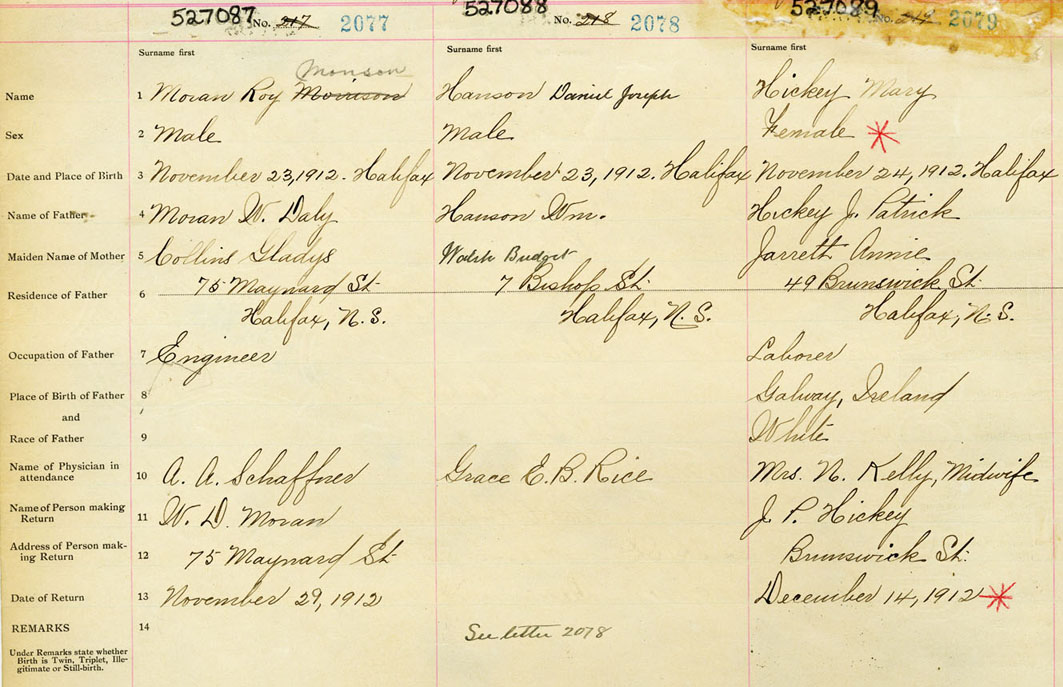 527087 No. 217 2077
527088 No. 218 2078
527089 No. 2079
Surname first Surname first Surname first
Monson
Name 1 Moran Roy Morrison Hanson Daniel Joseph Hickey Mary
Sex 2 Male Male Female
Date and Place of Birth 3 November 23, 1912. Halifax November 23, 1912. Halifax November 24, 1912. Halifax
Name of Father 4 Moran W. Daly Hanson Wm. Hickey J. Patrick
Maiden Name of Mother 5 Collins Gladys Walsh Jarrett Annie
Residence of Father 6 75 Maynard St. 7 Bishop St. 49 Brunswick St.
Halifax, N.S. Halifax, N.S. Halifax, N.S.
Occupation of Father 7 Engineer Laborer
Place of Birth of Father 8 Galway, Ireland
and
Race of Father 9 White
Name of Physician in attendance 10 A. A. Schaffner Grace E. B. Rice Mrs. N. Kelly, Midwife
Name of Person making Return 11 W. D. Moran J. P. Hickey
Address of Person mak-
ing Return 12 75 Maynard St. Brunswick St.
Date of Return 13 November 29, 1912 December 14, 1912
REMARKS 14 See letter 2078
Under Remarks state whether
Birth is Twin, Triplet, Ille-
gitimate or Still-birth.